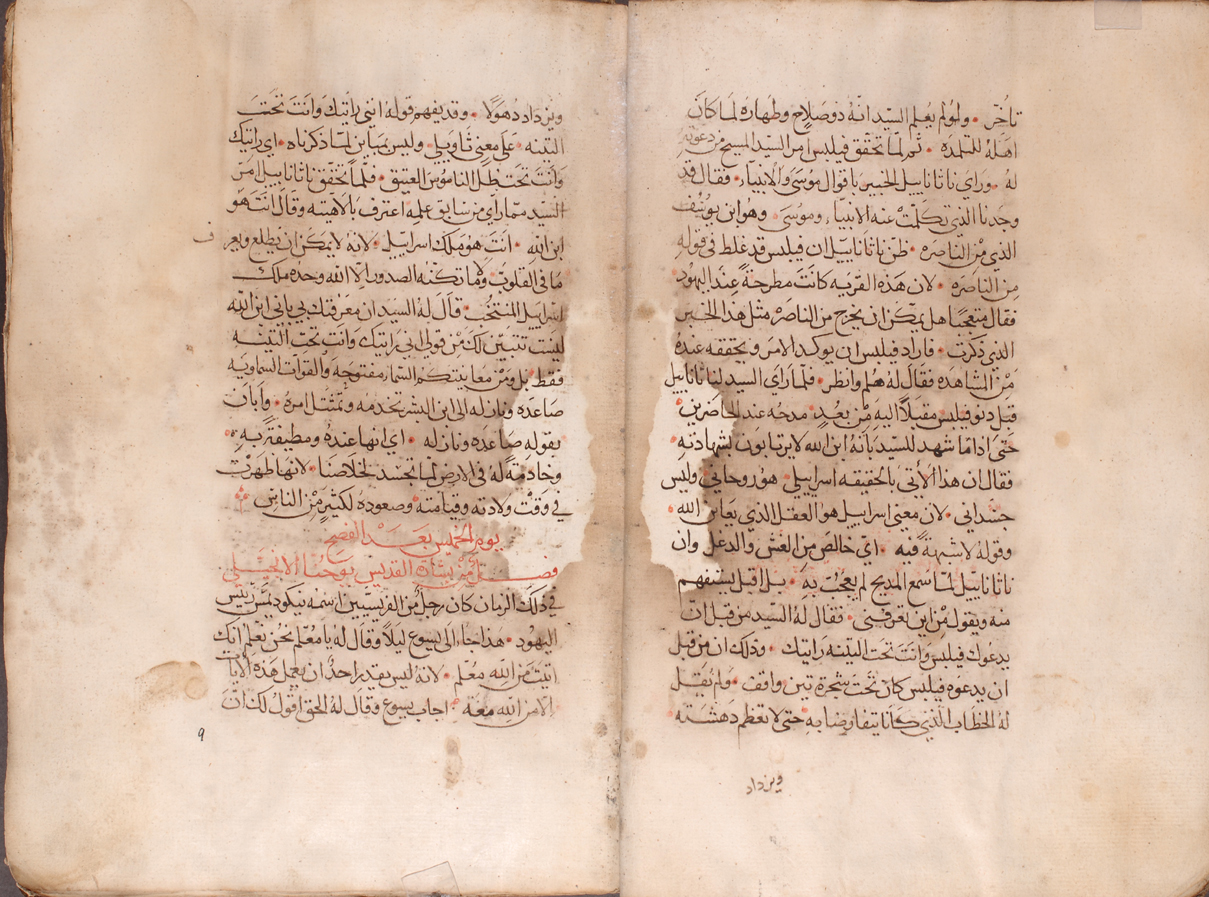 تاخر • ولو لم يعلم السيد انه ذو صلاح وطهاره لما كان
اهله للتلمذه • ثم لما تحقق فيلبس امر السيد المسيح من دعوته
له • وراي ناثانابيل الخبير باقوال موسى والانبياء • فقال قد
وجدنا الذي تكلمت عنه الانبياء وموسى • وهو ابن يوسف
الذي من الناصره • ظن ناثانابيل ان فيلبس قد غلط في قوله
من الناصره • لان هذه القريه كانت مطرحة عند اليهود
فقال متعجبا هل يمكن ان يخرج من الناصره مثل هذا الخبر
الذي ذكرت • فاراد فيلبس ان يوكد الامر ويحققه عنده
من المشاهده فقال له هلم وانظر • فلما راي السيد لناثانابيل
قبل دنو فيلبس مقبلا اليه من بعد • مدحه عند الحاضرين
حتى اذا ما شهد للسيد بانه ابن الله لا يرتابون بشهادته •
فقال ان هذا الآتي بالحقيقه اسراييلي • هو روحاني وليس
جسداني • لان معنى اسراييل هو العقل الذي يعاين الله •
وقوله لا شبهة فيه • اي خالص من الغش والدغل وان
ناثانابيل لما سمع المديح لم يعجب به • بل اقبل يستفهم
منه ويقول من اين تعرفني • فقال له السيد من قبل ان
يدعوك فيلبس وانت تحت التينه رايتك • وذلك ان من قبل
ان يدعوه فيلبس كان تحت شجرة تين واقف • ولم يقل
له الخطاب الذي كانا يتفاوضا به حتى لا تعظم دهشته •
ويزداد
ويزداد ذهولا • وقد يفهم قوله انني رايتك وانت تحت
التينه • على معنى تاويلي • وليس بمباين لما ذكرناه • اي رايتك
وانت تحت ظل الناموس العتيق • فلما تحقق ناثانابيل امر
السيد مما راي من سابق علمه اعترف بالاهيته وقال انت هو
ابن الله • انت هو ملك اسراييل • لانه لا يمكن ان يطلع ويعرف
ما في القلوب • وما تكنه الصدور الا الله وحده ملك
اسراييل المنتخب • قال له السيد ان معرفتك بي باني ابن الله
ليست تتبين لك من قولي اني رايتك وانت تحت التينه
فقط بل ومن معاينتكم السماء مفتوحه والقوات السماويه
صاعده ونازله الى ابن البشر تخدمه وتمتثل امره • وابان
بقوله صاعده ونازله • اي انها عنده ومطيفة به •
وخادمة له في الارض لما تجسد لخلاصنا • لانها ظهرت
في وقت ولادته وقيامته وصعوده لكثير من الناس
يوم الخميس بعد الفصح
فصل من بشارة القديس يوحنا الانجيلي
في ذلك الزمان كان رجل من الفريسيين اسمه نيكوديمس رييس
اليهود • هذا جاء الى يسوع ليلا وقال له يا معلم نحن نعلم انك
اتيت من الله معلم • لانه ليس يقدر احد ان يعمل هذه الايات
الا من الله معه • اجاب يسوع وقال له الحق اقول لك ان
9